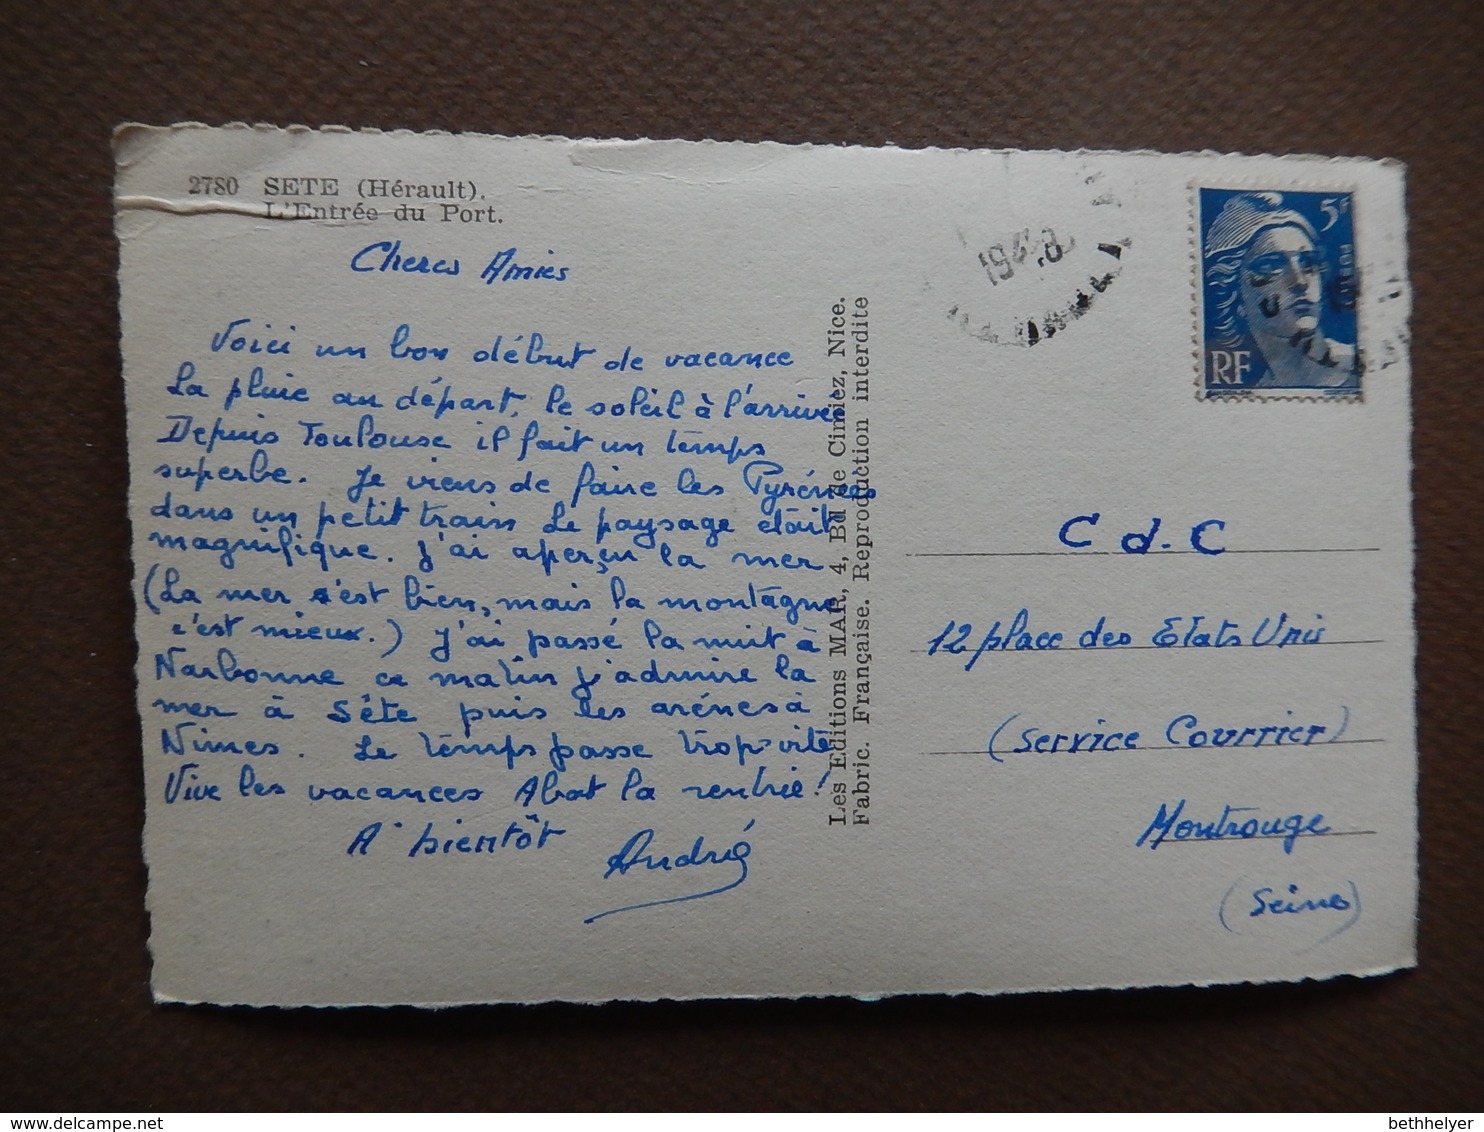 2780 SETE (Hérault).
L'Entrée du Port.
Cheres Amies
Voici un bon début de vacance
La pluie au départ, le soleil à l'arrivée
Depuis Toulouse il fait un temps
superbe. Je viens de faire les Pyrénées
dans un petit train Le paysage était
magnifique. J'ai aperçu la mer
(La mer c'est bien, mais la montagne
c'est mieux.) J'ai passé la nuit à
Narbonne ce matin j'admire la
mer à Sète puis les arénes à
Nimes. Le temps passe trop vite
Vive les vacances A bat la rentrée!
A bientôt
André
Les Editions MAR, 4, Bd de Cimiez, Nice.
Fabric. Française. Reproduction interdite
5F
RF
C d. C
12 place des Etats Unis
(Service Courrier)
Montrouge
(Seine)
bethhelyer